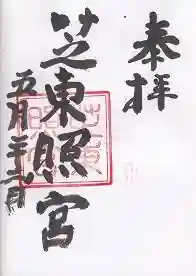 奉拝
芝東照宮
五月二十二日